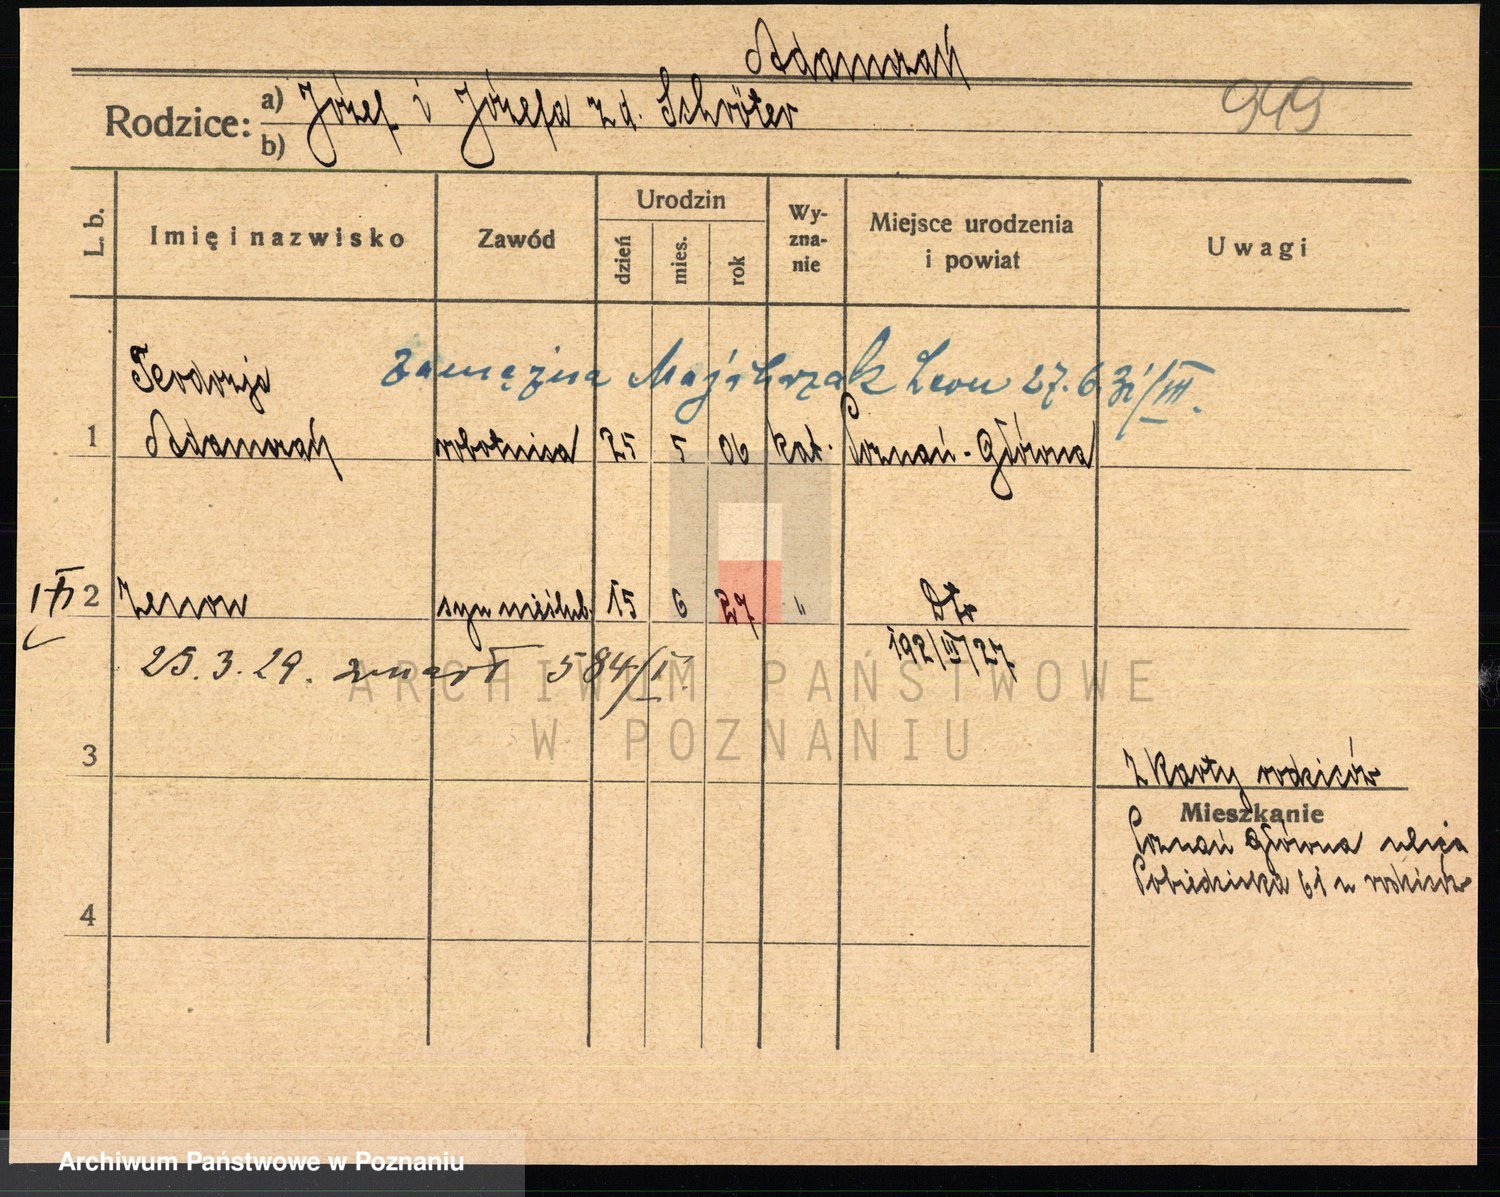 Adamczak
949
Rodzice: a) Józef i Józefa z d. Schröter
b)
L. b.
Imię i nazwisko
Zawód
Urodzin
dzień
mies.
rok
Wy-
zna-
nie
Miejsce urodzenia
i powiat
Uwagi
Teodozja zamężna Majchrzak Leon 27.6.31/III.
1 Adamczak robotnica 25 5 06 kat. Poznań-Główna
2 Zenon syn nieślub. 15 6 27 "
192/III/27
25.3.29. zmarł 584/I.
ARCHIWUM PAŃSTWOWE
W POZNANIU
3
Z karty rodziców
Mieszkanie
Poznań Główna ulica
Pobiedziska 61 u rodziców
4
Archiwum Państwowe w Poznaniu